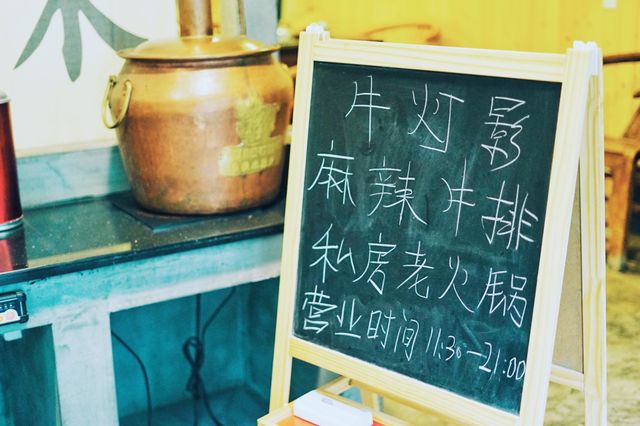 牛灯影
麻辣牛排
私房老火锅
营业时间 11:30-21:00